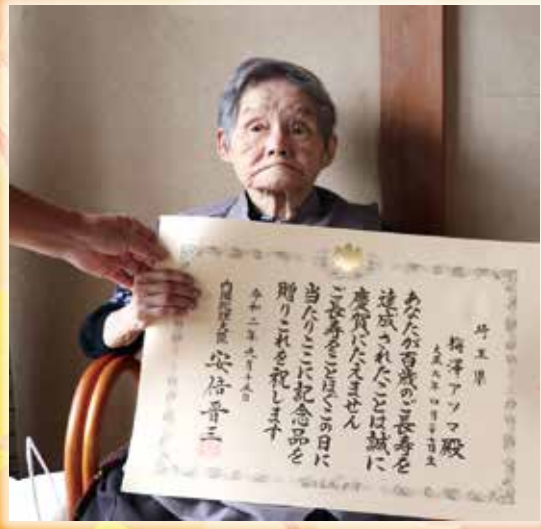 埼玉県
梅澤アソマ殿
大正九年四月
生
あなたが百歳のご長寿を
達成されたことは誠に
慶賀にたえません
ご長寿をことほぐこの日に
当たりここに記念品を
贈りこれを祝します
令和二年九月十五日
内閣総理大臣 安倍晋三